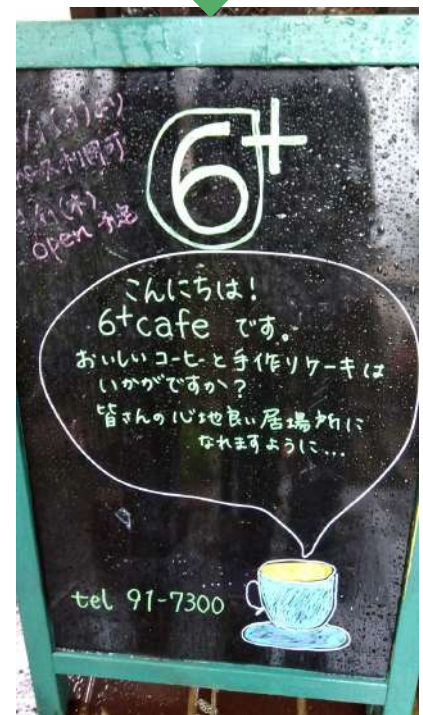 6+
open 予定
こんにちは!
6+cafe です。
おいしいコーヒーと手作りケーキは
いかがですか?
皆さんの心地良い居場所に
なれますように...
tel 91-7300